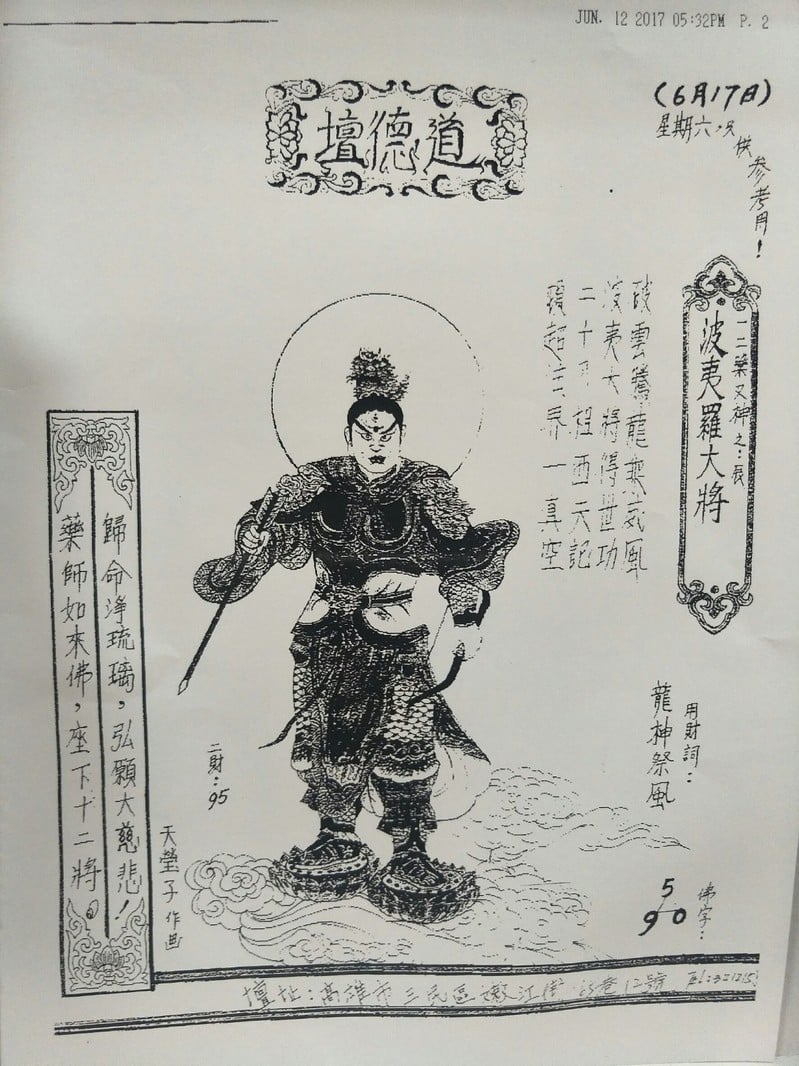 JUN. 12 2017 05:32PM P. 2
道德壇
(6月17日)
星期六
供參考用！
一二藥叉神之：辰
波夷羅大將
破雲騰龍無威風
波夷大將得世功
西天記
超法界一真空
用財詞：
龍神祭風
二財：95
佛字：
5
9 0
歸命淨琉璃，弘願大慈悲！
藥師如來佛，座下十二將。
天瑩子作画
壇址：高雄市三民區嫩江街 巷12號